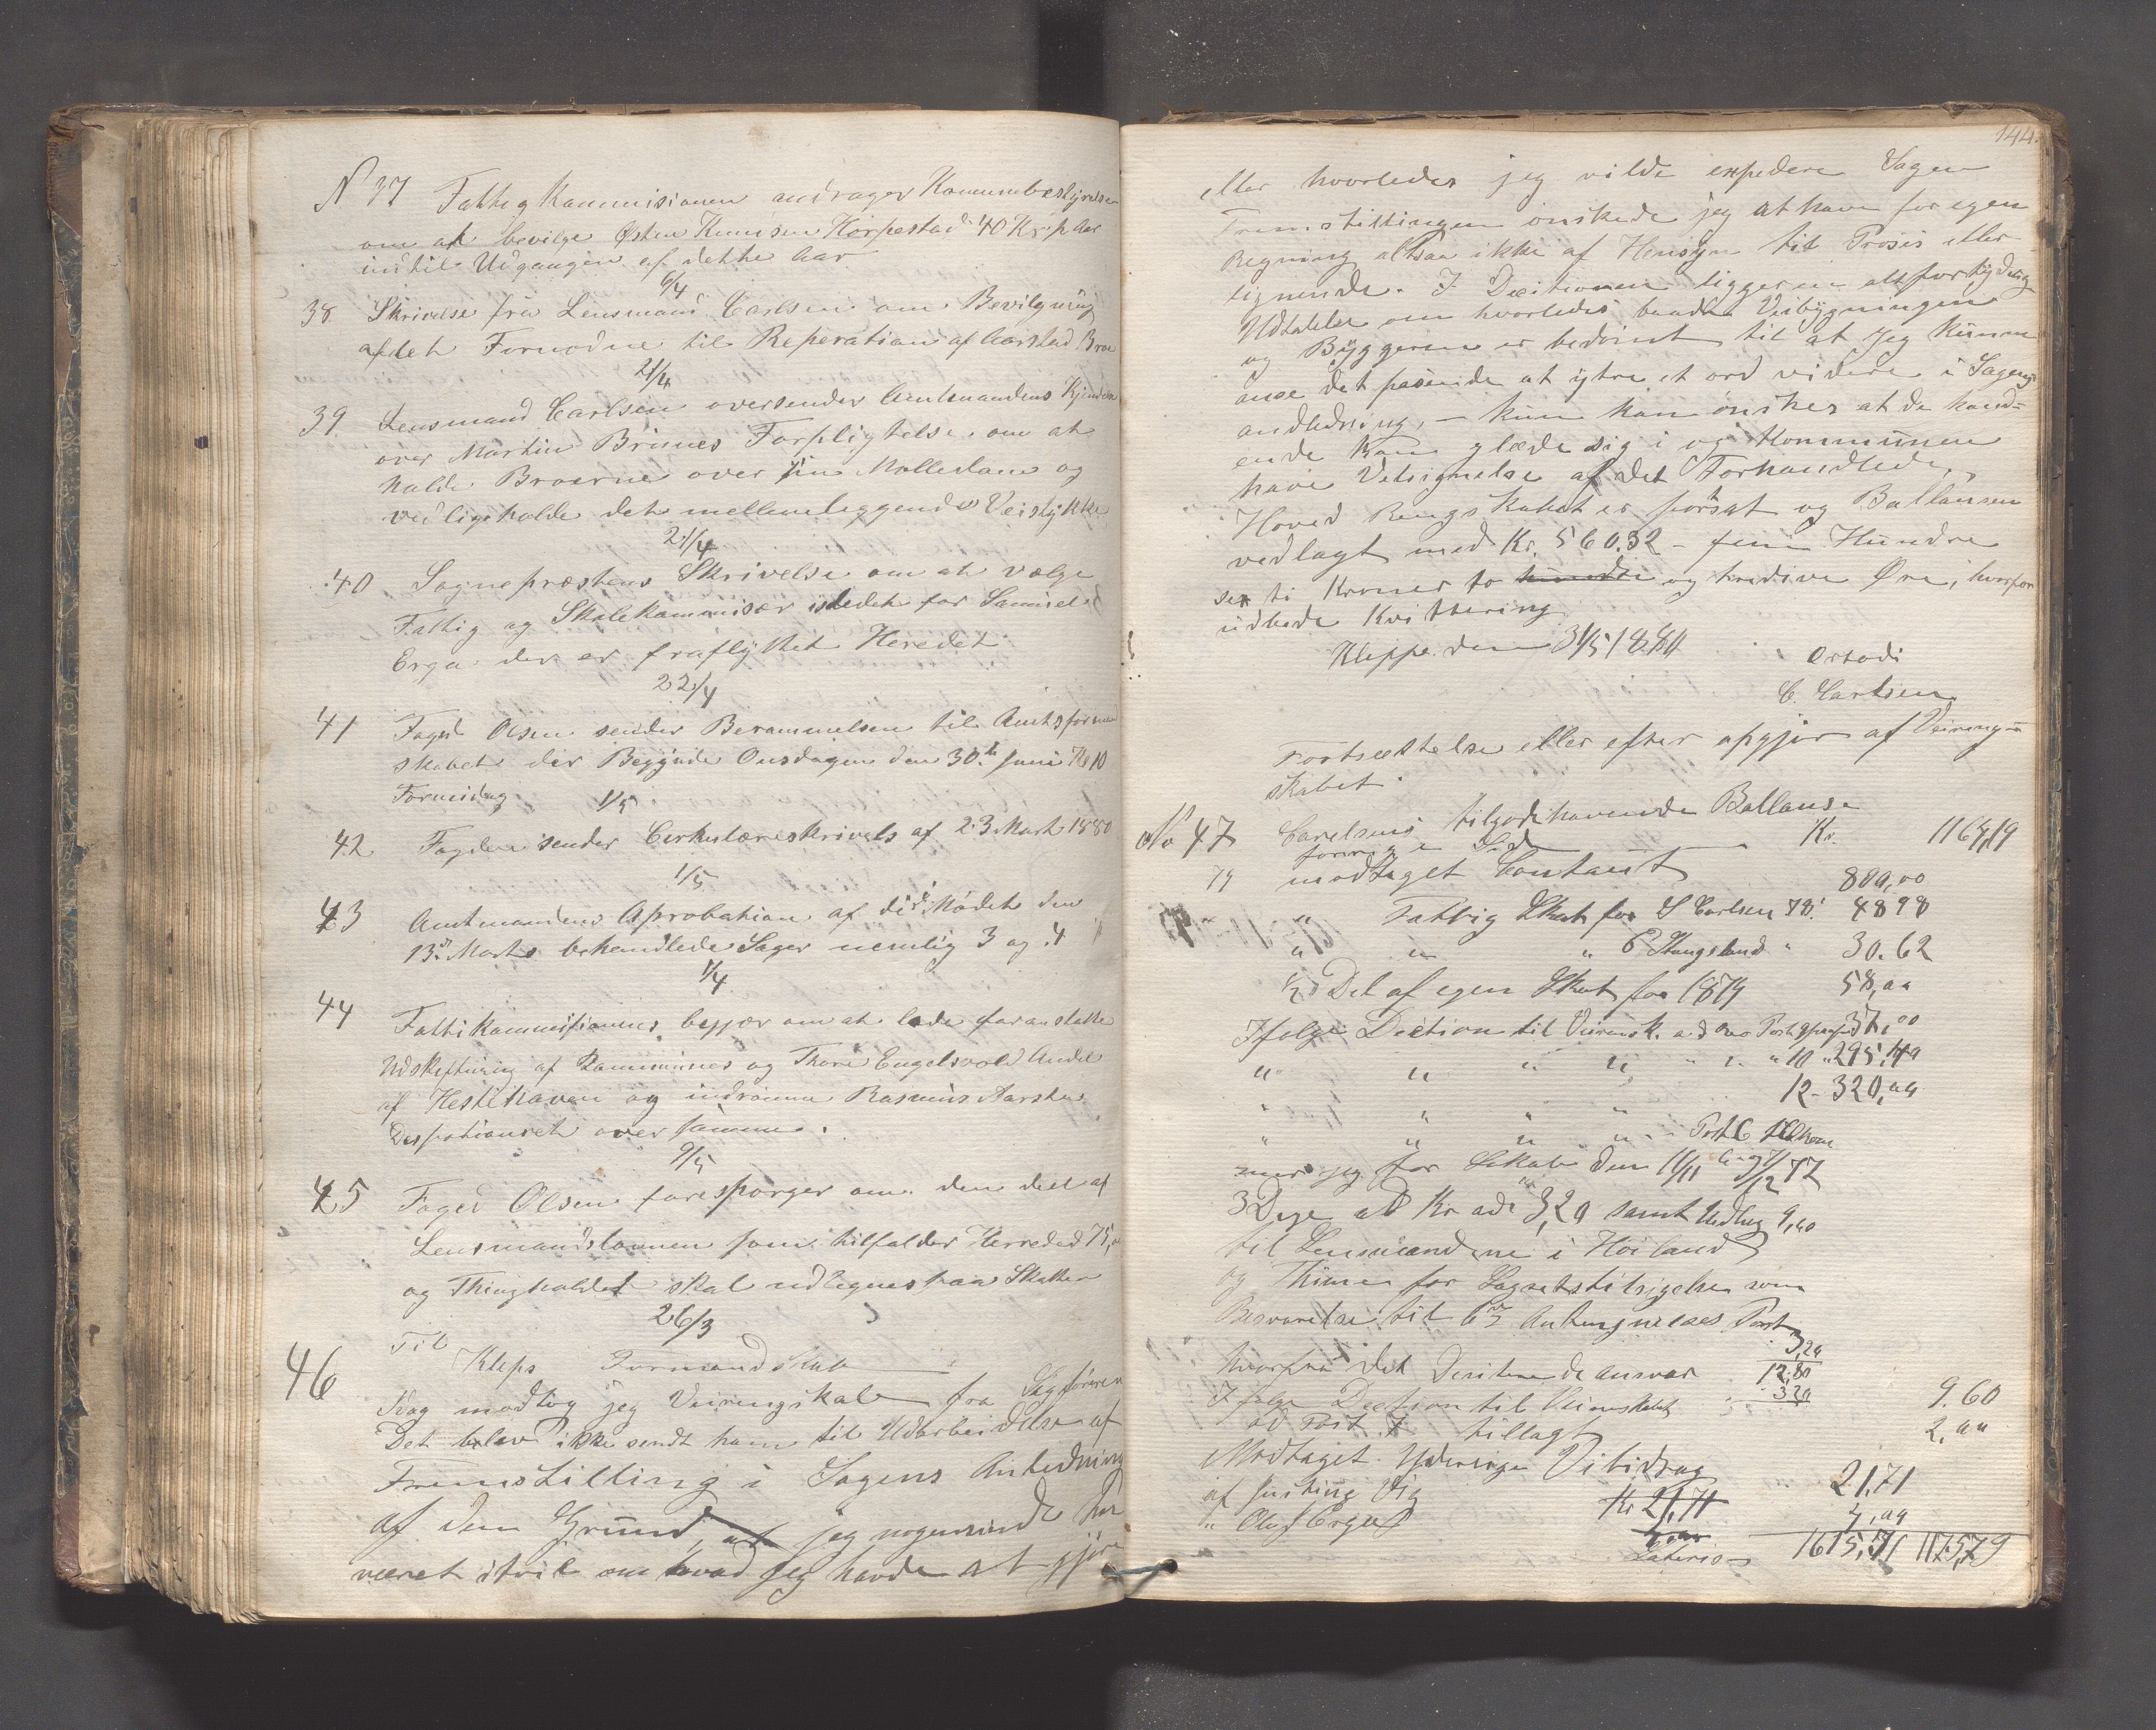 N 37 Fattig Kommisionen andrager Kommunebestyrelse
om at bevilge Østen Knudsen Hörpestad 40 Kr. p Aar
indtil Udgangen af dette aar
6/4
38 Skrivelse fra Lensmand Carlsen om Bevilgning
af det Fornødne til Reperation af Aarstad Broe
21/4
39. Lensmand Carlsen oversender Amtmandens Kjendelse
over Martin Brunes Forpligtelse om at
holde Broerne over sin Mølledam og
vedligeholde det mellemleggende Veistykke
21/4
40 Sognepræstens Skrivelse om at vælge
Fattig og Skolekommisær istedet for Samuel
Erga der er fraflyttet Heredet
22/4
41 Foged Olsen sender Berammelsen til Amtsformand
skabet der Begynde Onsdagen den 30te Juni Kl 10
Formidag 1/5
42 Fogden sender Cirkulæreskrivels af 23 Marts 1880
1/5
43 Amtmandens Aprobation af de i Mødet den
13de Marts behandlede Sager nemlig 3 og 4
1/4
44 Fattikommisionens begjær om at lade foranstalte
Udskiftning af Kommunes og Thore Engelsvold Andel
af Hestehaven og indrømme Rasmus Aarstad
Despotionsret over samme.
9/5
45 Foged Olsen forespørger om den deel af
Lensmandslønnen som tilfalder Herreded 75,
og Thingholdet skal udlignes paa Skatten
26/3
Til
46 Kleps Formandskab
Idag modtog jeg Veiringskab fra Sagføreren
Det blev ikke sendt ham til Udarbeidelse af
Fremstilling i Sagens Anledning
af den Grund, at jeg nogensinde har
været i tvil om hvad jeg havde at gjøre
144.
eller hvorledes jeg vilde expedere Sagen
Fremstillingen ønskede jeg at have for egen
Regning altsaa ikke af Hensyn til Prosès eller
lignende. I Decitionen ligger en altfor tydelig
Udtalelse om hvorledes baade Veibygningen
og Byggeren er bedømt til at jeg kunne
anse det pasende at ytre et ord videre i Sagens
andledning, – kun kan ønskes at de hand=
ende kan glæde sig i og Kommunen
have Velsignelse af det Forhandlede,
Hoved Rengskabet er forsat og Ballansen
vedlagt med Kr. 560.32 – fem Hundre
sex ti Kroner to og tredive Øre, hvorfor
udbede Kvittering
Kleppe den 31/5 1880
Ærbødi
C. Carlsen
Fortsættelse eller efter opgjør af Veireng=
skabet
No 47 Carlsens tilgodehavende Ballanse
forrige Side Kr. 1164,19
79 modtaget Contant 800,00
" " Fattig Skat for S Carlsen 78. 4898
" " " P Stangeland " 30.62
1/2 Del af egen Skat for 1879 58,00
Ifølge Decition til Veirensk. ad Post 9 37,00
" " " " " " 10 " 295,40
12 - 320,00
" " " " Post 6
mer jeg for Sekab den 11/11 og 7/12 77
3 Dage at Kr ad 3,20 samt Udlæg 9,60
til Lensmændene i Høiland
og Thime for Lagretstilsigelse som
Besvarelse til 6te Antegnelses Post
3,20
hvorfra det Deciterede ansvar 12,80
3,20 9.60
Ifølge Decition til Veirenskabet
ad Post 7 tillagt 2,00
Modtaget Yderligere Vibidrag
af Justine Vig Kr 21,71 21,71
" Oluf Erga 4,00
Lateris 1615,71 1175,79